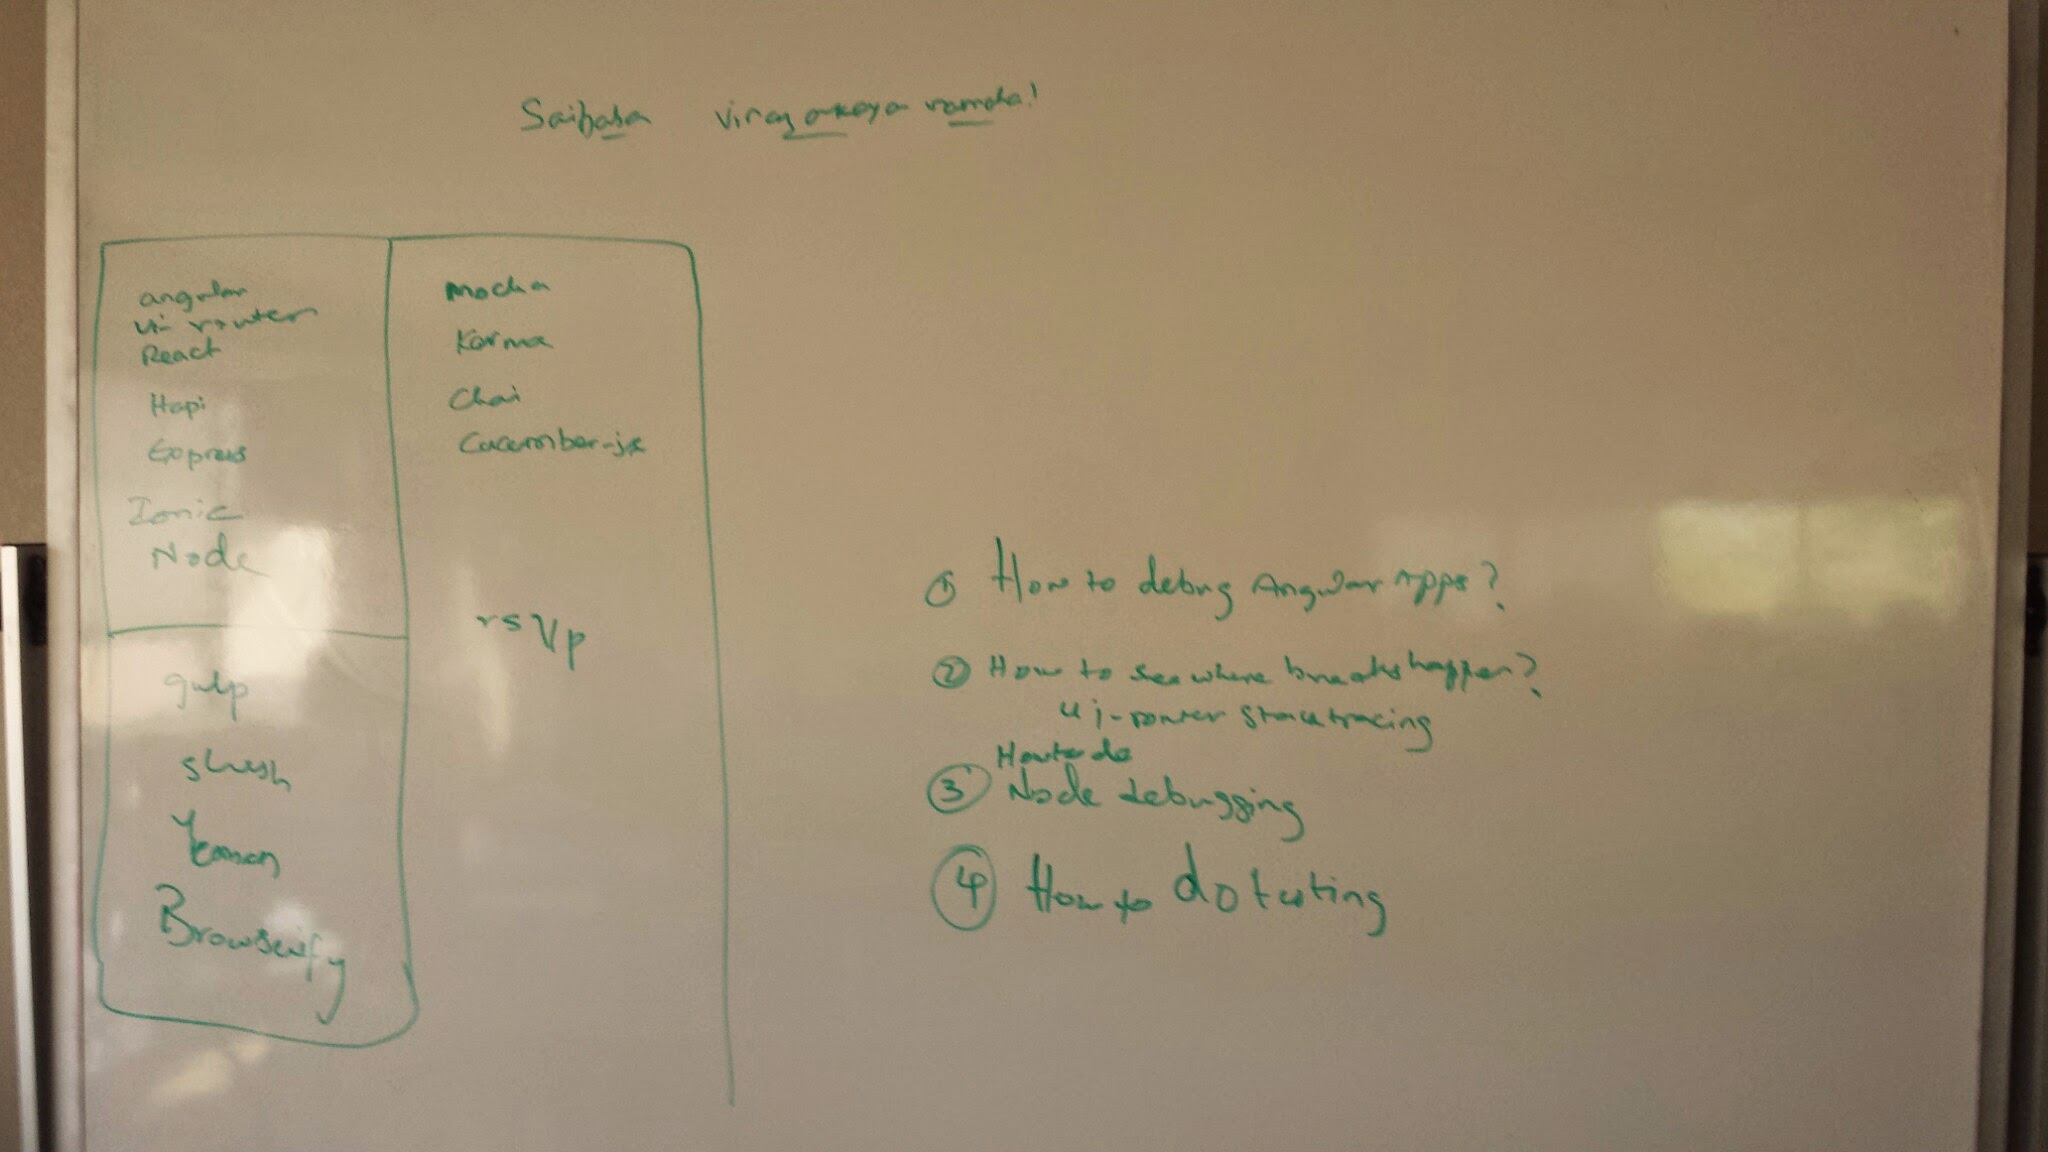 Saibaba
angular
ui-router
React
Hapi
Express
Ionic
Node
gulp
slush
Yeoman
Browserify
Mocha
Karma
Chai
Cucumber-js
rsvp
① How to debug Angular Apps?
② How to see where breaks happen?
ui-router stack tracing
How to do
③ Node debugging
④ How to do testing